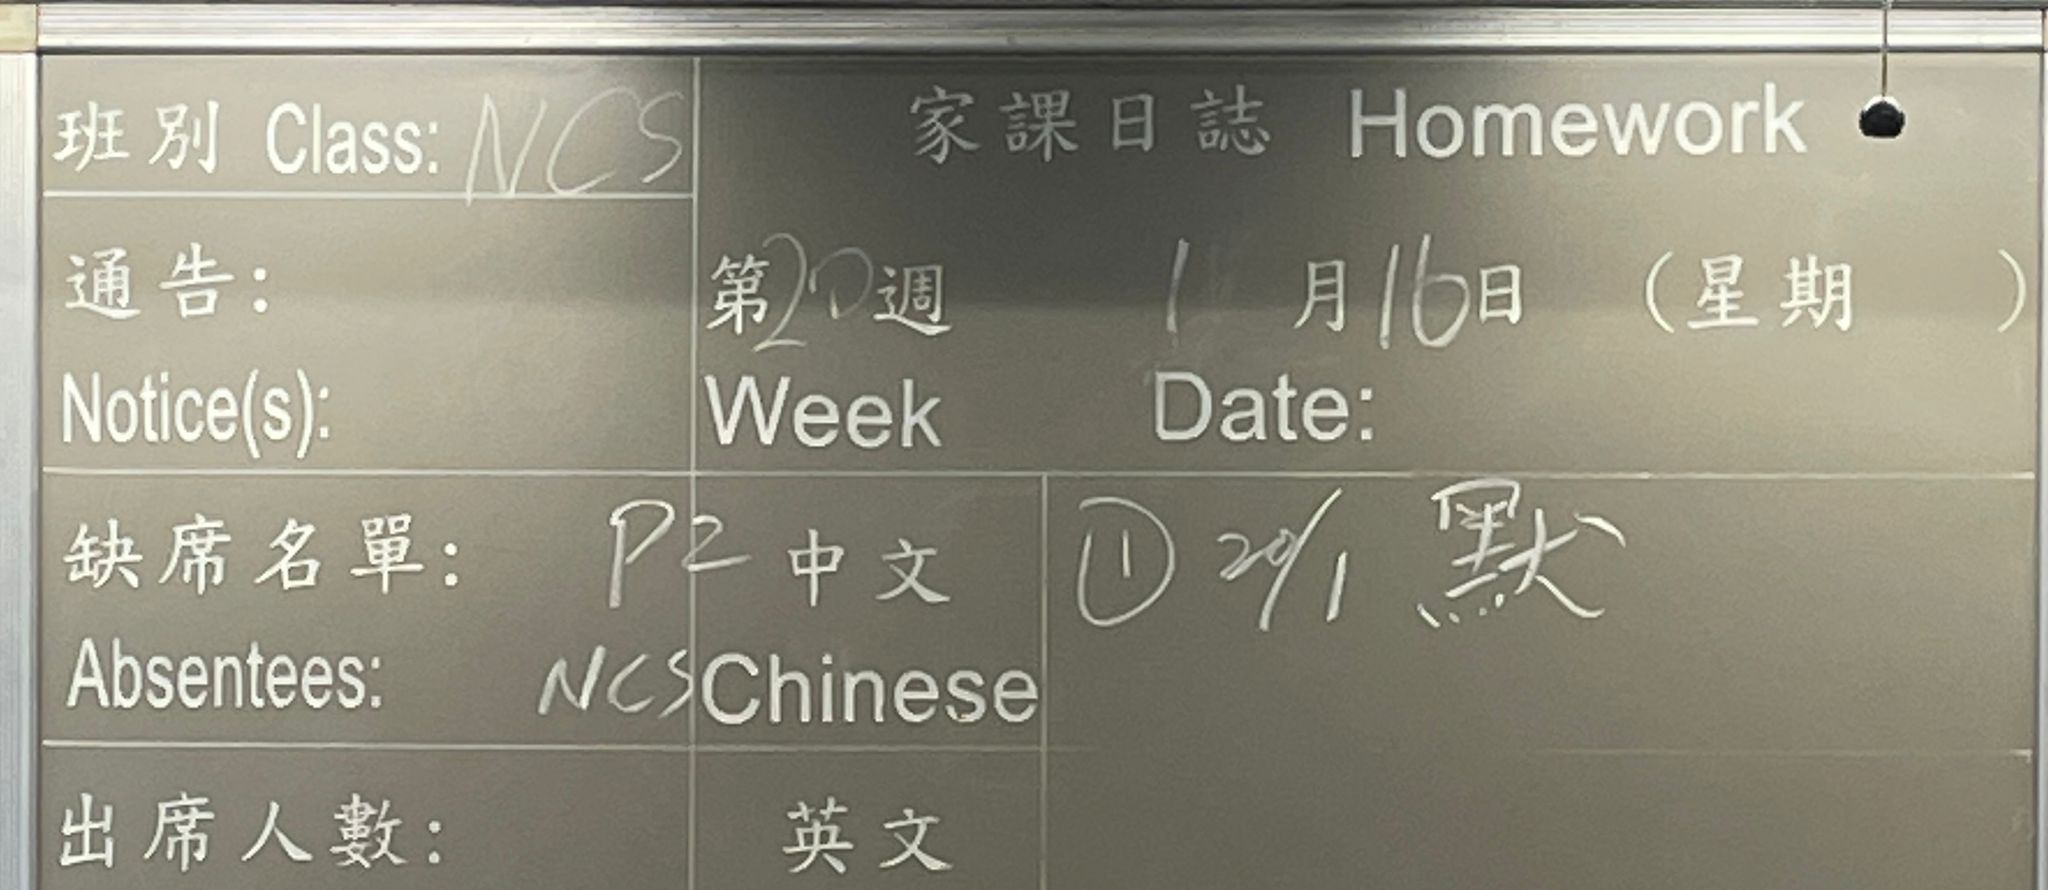 班別 Class: NCS
家課日誌 Homework
通告:
Notice(s):
第20週 1月16日 (星期 )
Week Date:
缺席名單:
Absentees:
P2
NCS
中文
Chinese
① 20/1 默
出席人數:
英文